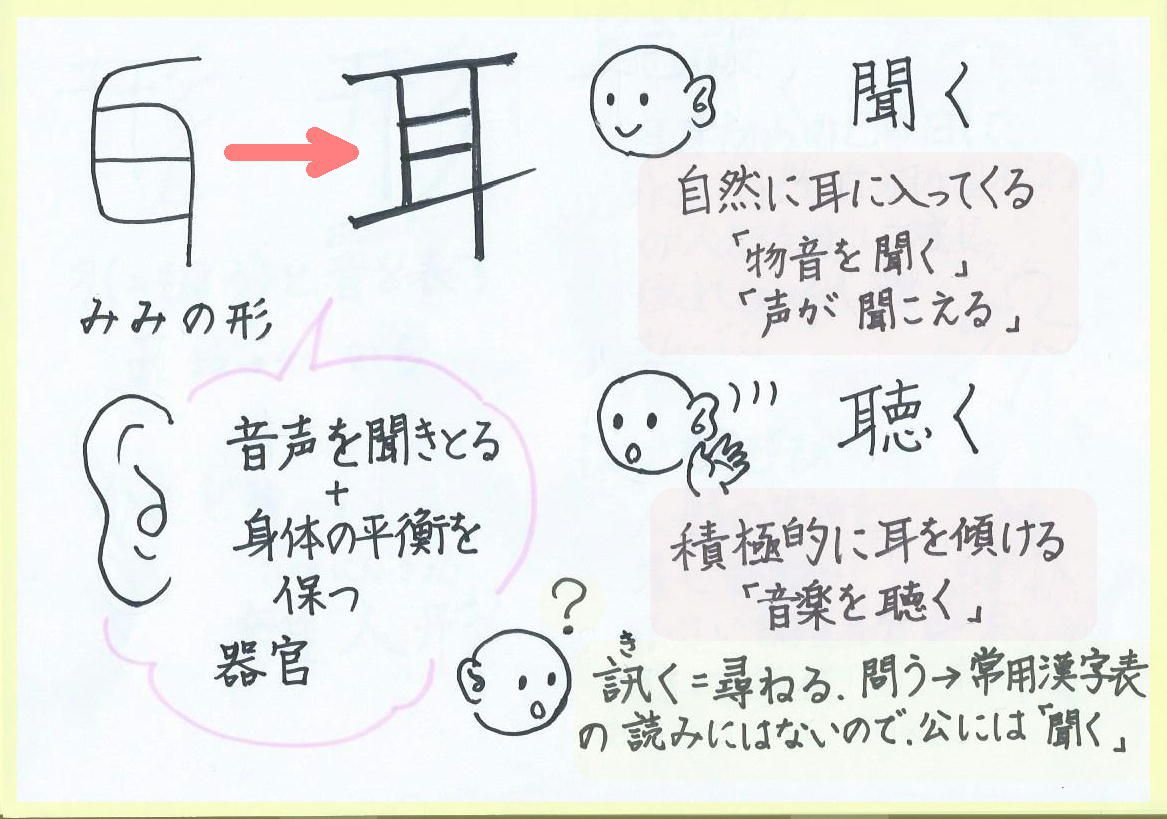 耳
みみの形
音声を聞きとる
+
身体の平衡を
保つ
器官
聞く
自然に耳に入ってくる
「物音を聞く」
「声が聞こえる」
聴く
積極的に耳を傾ける
「音楽を聴く」
?
き
訊く=尋ねる.問う→常用漢字表
の読みにはないので.公には「聞く」